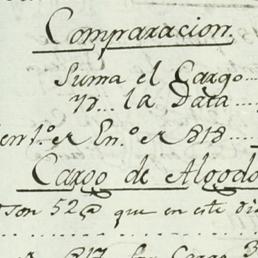 Comparacion.
Suma el Cargo
Yd... la Data
en 1.º de En.º de 818
Cargo de Algodo
son 52@ que en este di
817